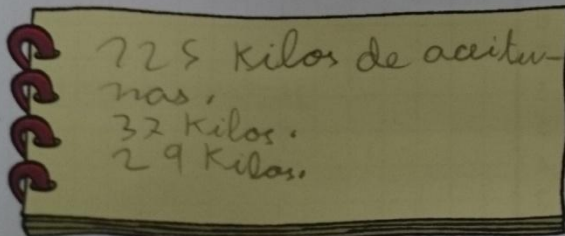 125 Kilos de aceitu-
nas.
37 Kilos.
29 Kilos.